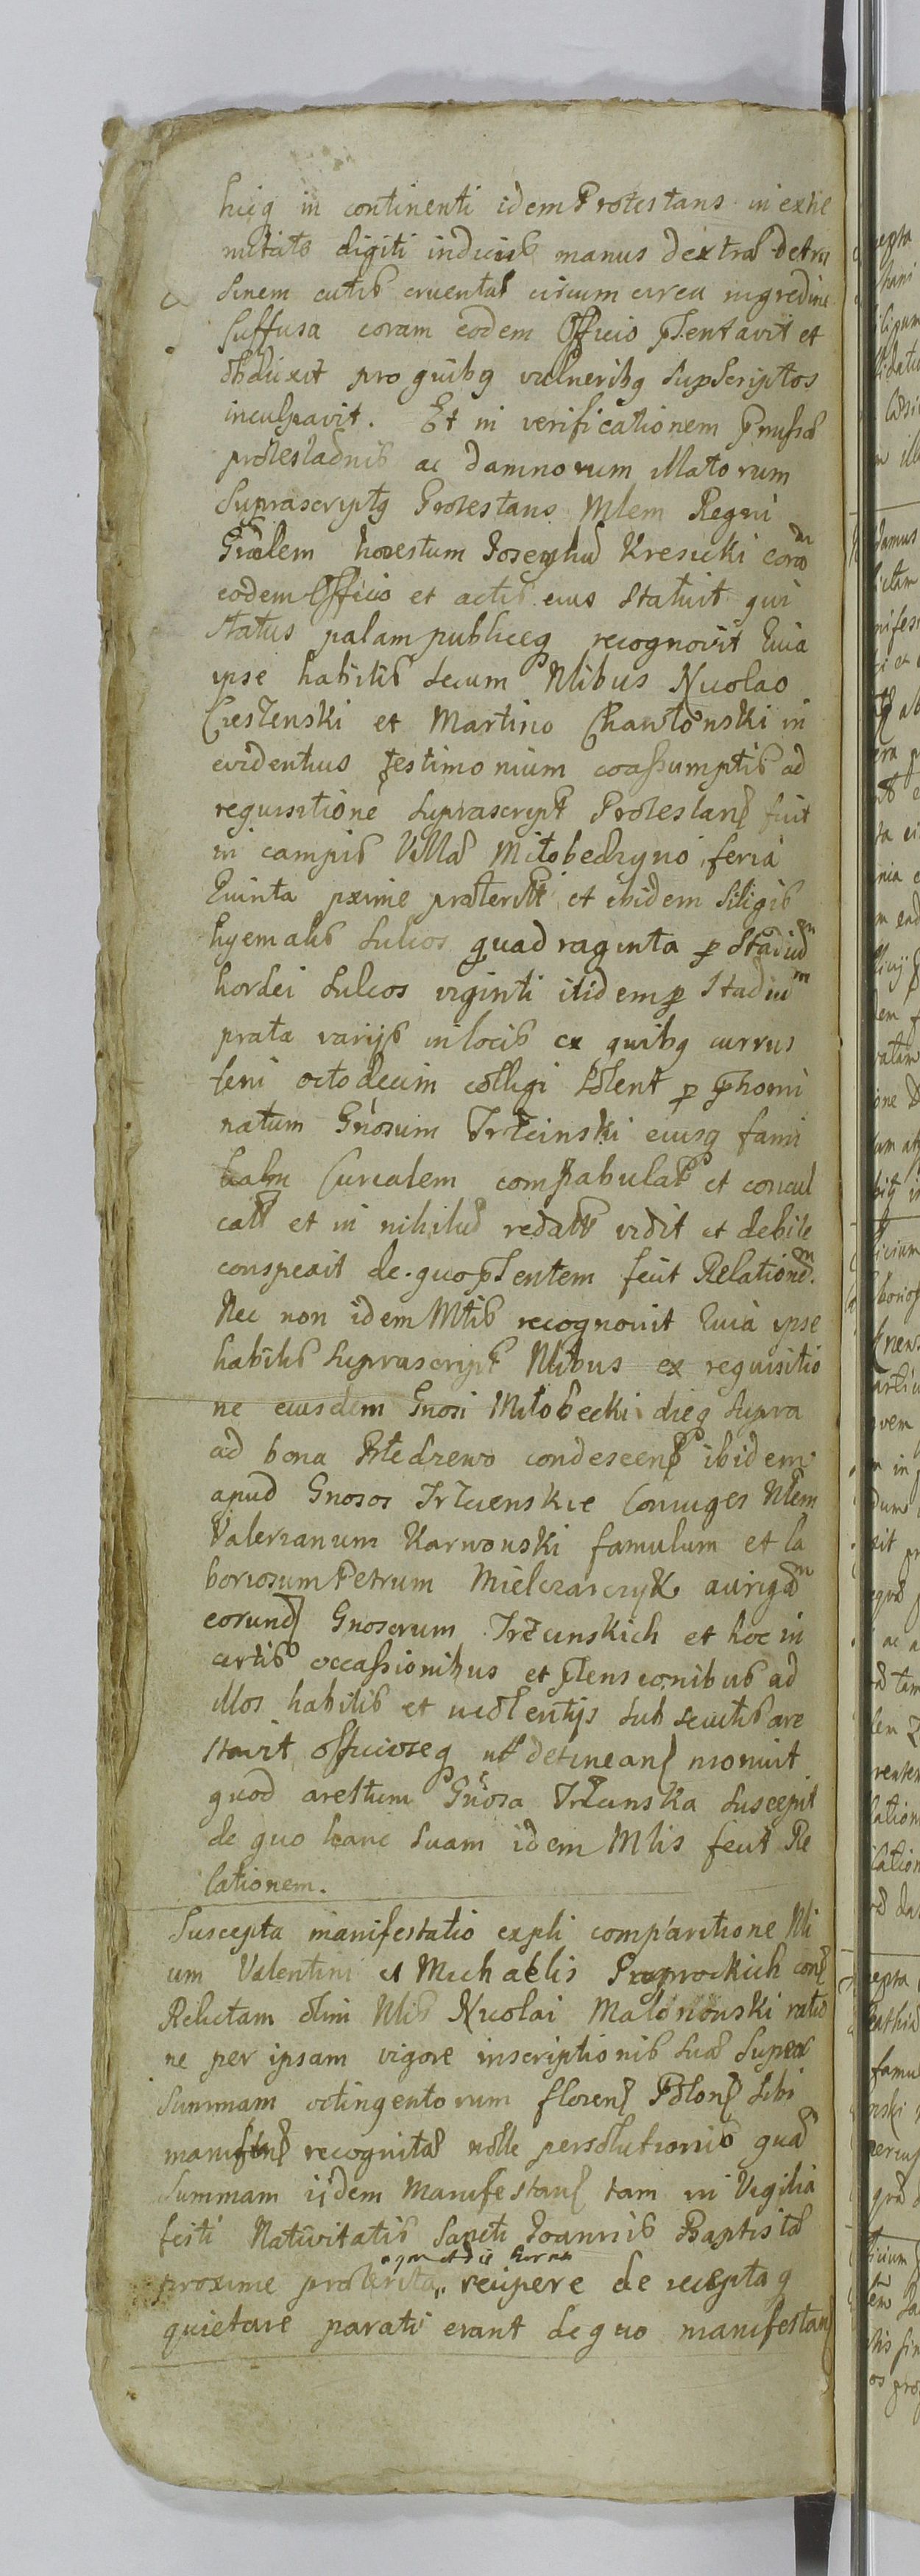 huiq in continenti idem Protestans in extre
mitate digiti indicis manus dextræ detru
sinem cutis cruentæ circum circa nigredine
suffusa coram eodem Officio pſentavit et
obduxit pro quibq vulneribq supscriptos
inculpavit. Et in verificationem pmissæ
protestaõnis ac damnorum illatorum
suprascriptq Protestans Mlem Regni
Gñalem honestum Josephũ Kresicki coram
eodem Officio et actis eius statuit qui
status palam publiceq recognovit Quia
ipse habitis secum Nlibus Nicolao
Cieszenski et Martino Chawłonski in
evidentius testimonium coassumptis ad
requisitionē suprascript Protestanſ fuit
in campis Villæ Miłobedzyno feria
Quinta pxime præterita et ibidem siligis
hyemalis sulcos quadraginta p Stadium
hordei sulcos viginti itidem p Stadium
prata varijs in locis ex quibq currus
feni octodecim colligi solent p pnomi
natum Gnosum Trzcinski eiusq fami
Curialem compabulat et concul
cata et in nihilũ redacta vidit et debite
conspexit de quo pſentem fecit Relationem.
Nec non idem Mlis recognovit Quia ipse
habitis suprascript Nlibus ex requisitio
ne eiusdem Gnosi Miłobecki dieq supra
ad bona condescenſ ibidem
apud Gnosos Trzcienskie Coniuges Nlem
Valerianum Karwonski famulum et la
boriosum Petrum Mielczarczyk aurigam
eorund Gnosorum Trzcinskich et hoc in
certis occassionibus et ptensionibus ad
illos habitis et violentijs sub securitis are
stavit officioseq ut detineanſ monuit
quod arestum Gnosa Trzcinska suscepit
de quo hanc suam idem Mlis fecit Re
lationem.
Suscepta manifestatio expli comparitione Nli
um Valentini et Michaelis Paprockich conſ
Relictam olim Nlis Nicolai Malonowski ratio
ne per ipsam vigore inscriptionis suæ super
summam octingentorum florenſ Polonſ sibi
manifanſ recognitæ nolle persolutionis quã
summam ijdem Manifestanſ tam in Vigilia
festi Nativitatis Sancti Joannis Baptistæ
proxime præterita recipere de receptaq
quietare parati erant de quo manifestanſ